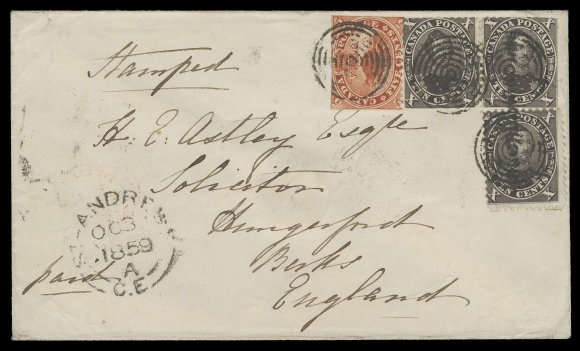 Stamped
CANADA POSTAGE
CANADA POSTAGE
CANADA POSTAGE
TEN CENTS
TEN CENTS
CANADA POSTAGE
TEN CENTS
H. E. Astley Esqre
Solicitor
Hungerford
Berks
England
ST. ANDREWS
OC 3
1859
A
C.E
paid